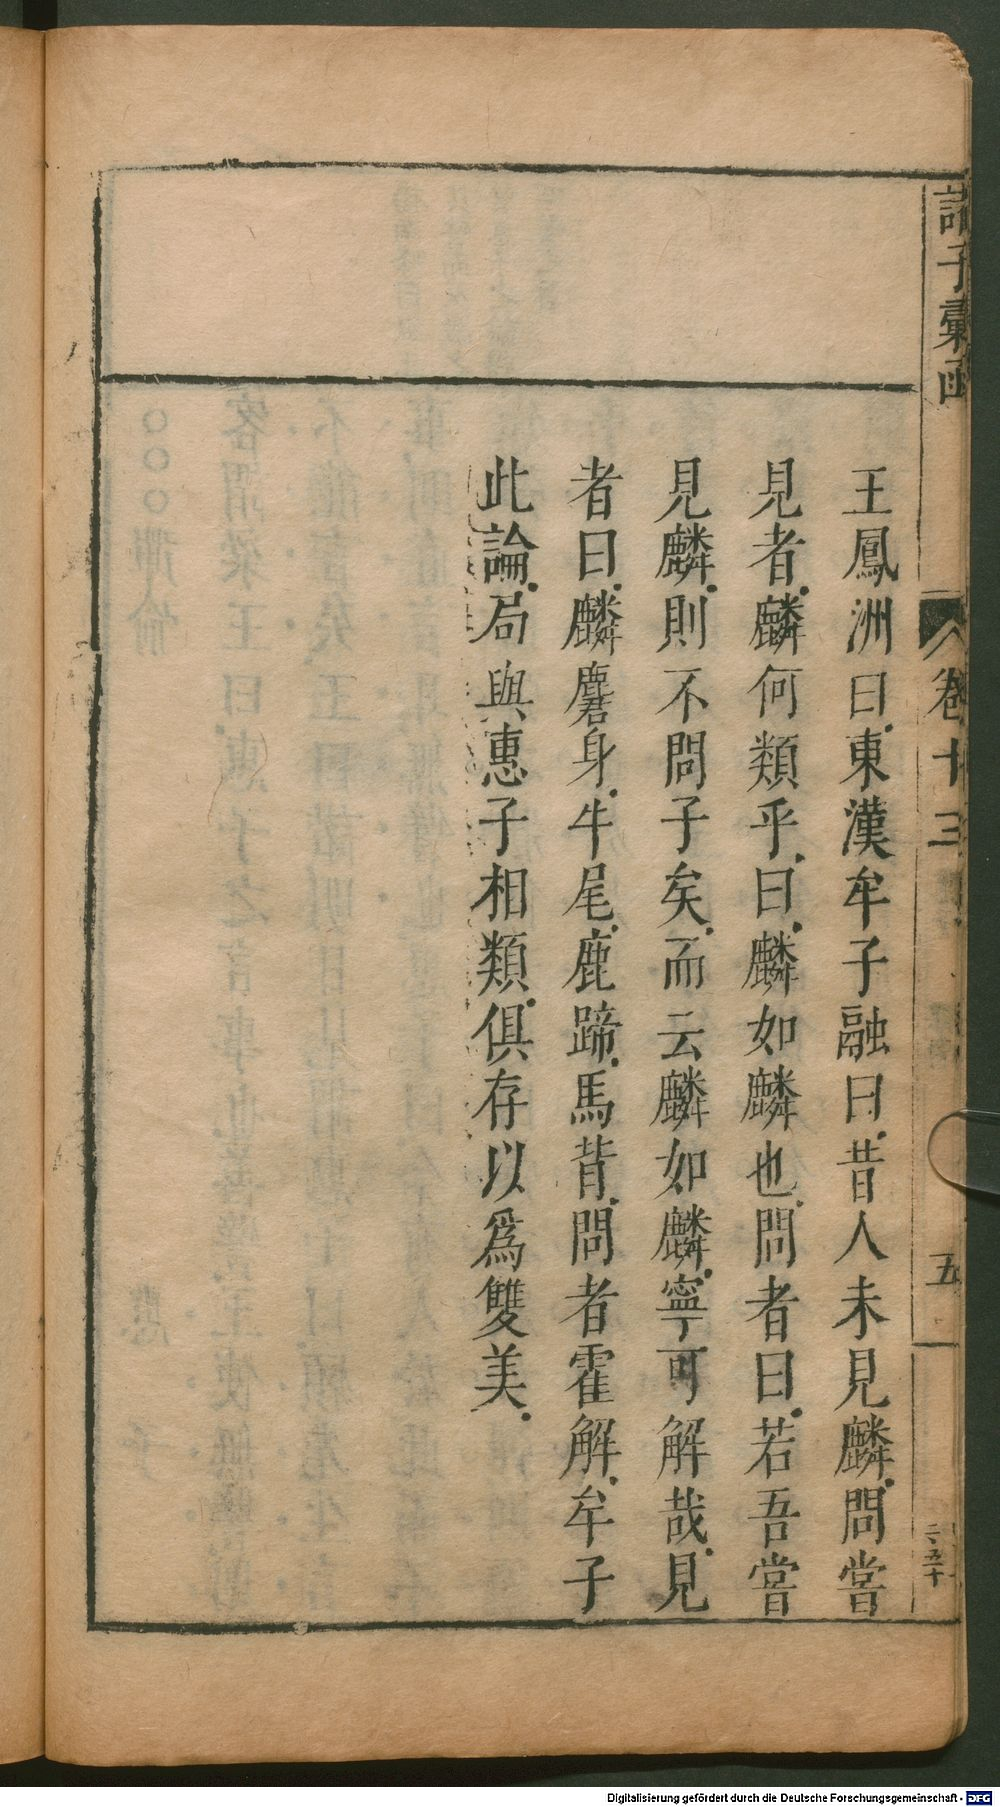 諸子彙函
卷十三
五
二五十
王鳳洲曰東漢牟子融曰昔人未見麟問嘗
見者麟何類乎曰麟如麟也問者曰若吾嘗
見麟則不問子矣而云麟如麟寧可解哉見
者曰麟麏身牛尾鹿蹄馬背問者霍解牟子
此論局與惠子相類俱存以爲雙美
Digitalisierung gefördert durch die Deutsche Forschungsgemeinschaft - DFG